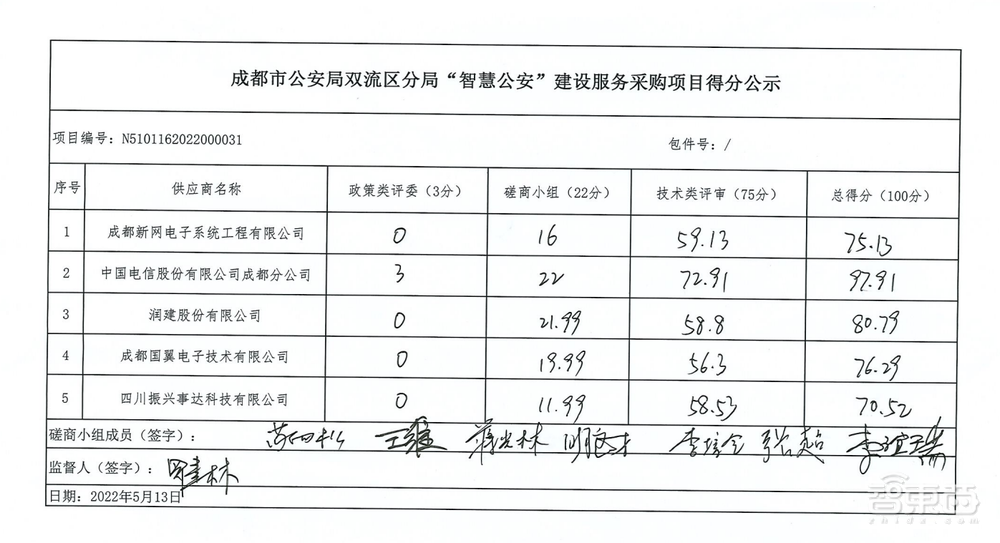 成都市公安局双流区分局“智慧公安”建设服务采购项目得分公示
项目编号：N5101162022000031 包件号：/
序号 供应商名称 政策类评委（3分） 磋商小组（22分） 技术类评审（75分） 总得分（100分）
1 成都新网电子系统工程有限公司 0 16 59.13 75.13
2 中国电信股份有限公司成都分公司 3 22 72.91 97.91
3 润建股份有限公司 0 21.99 58.8 80.79
4 成都国翼电子技术有限公司 0 19.99 56.3 76.29
5 四川振兴事达科技有限公司 0 11.99 58.53 70.52
磋商小组成员（签字）：
监督人（签字）：
日期：2022年5月13日
智東芯
zhidx.com